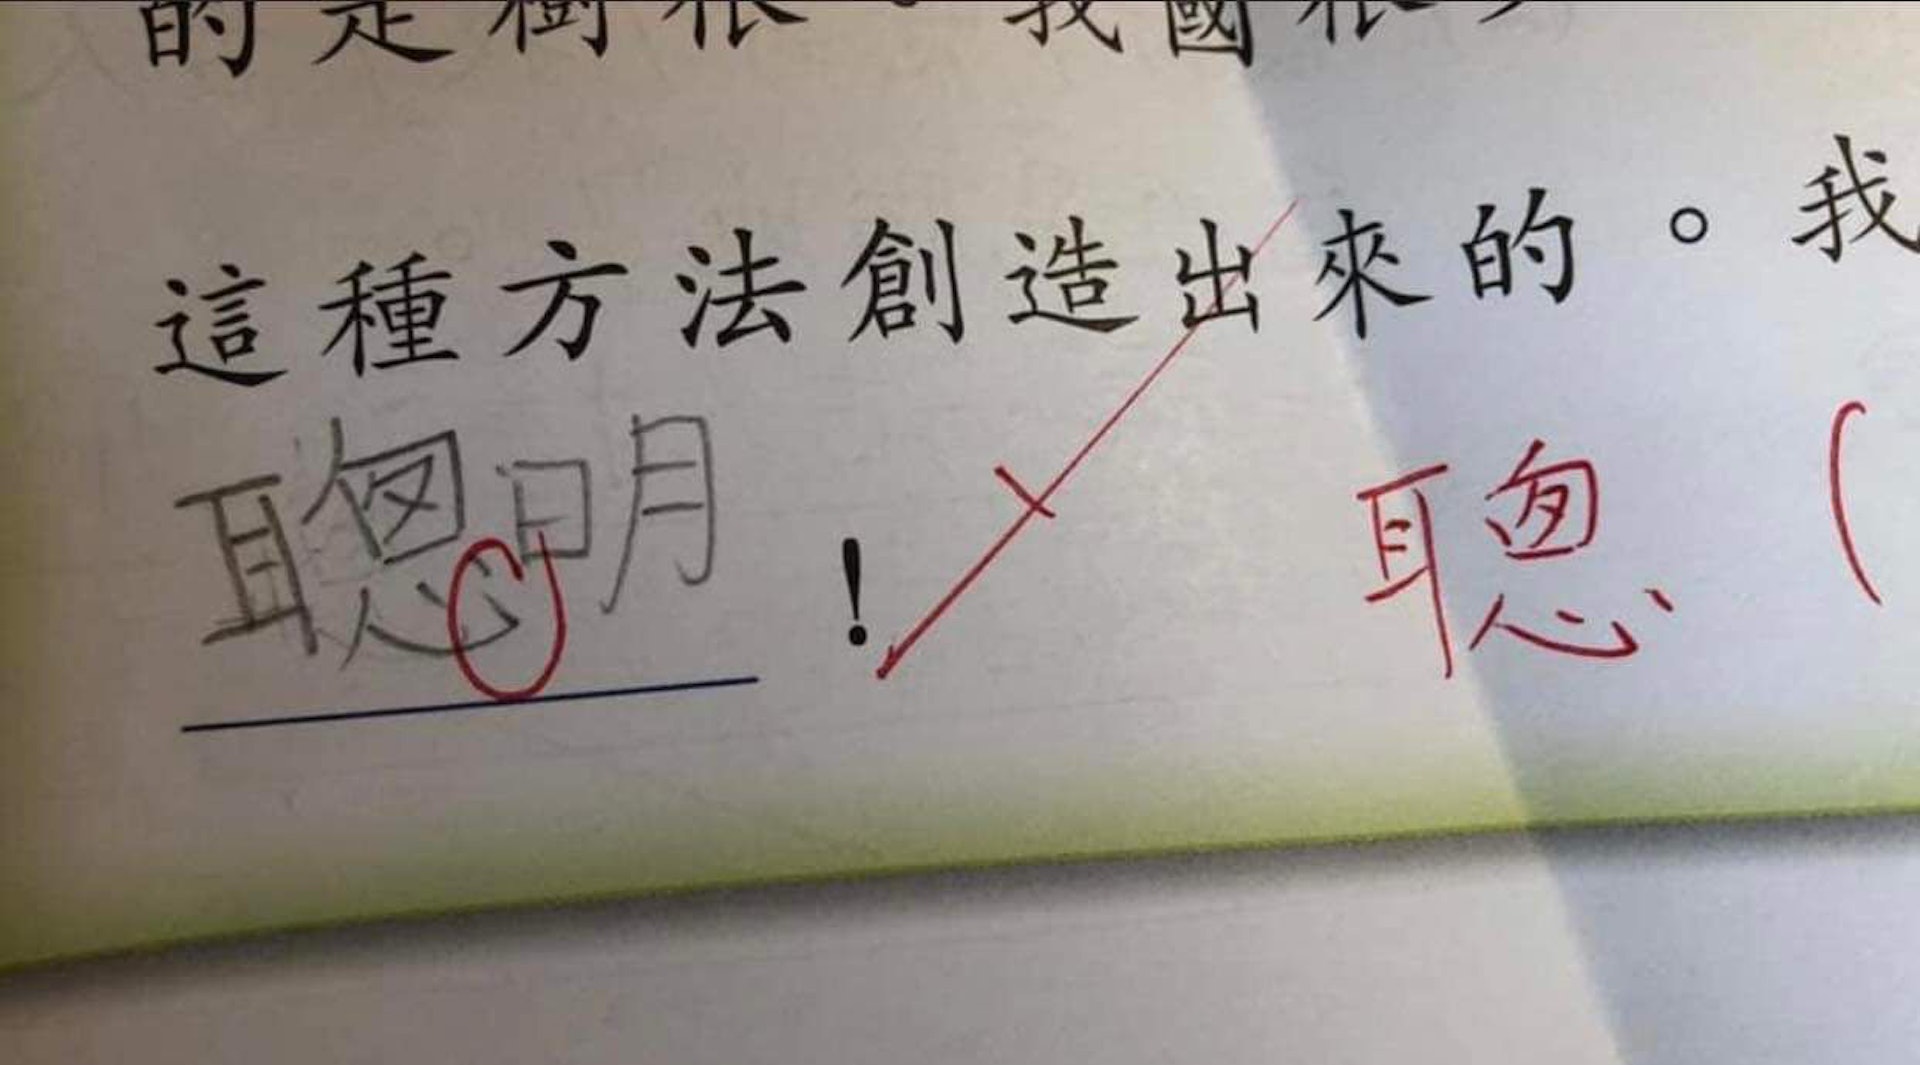 的是樹根。我國很多
這種方法創造出來的。我
聰明！ 聰（